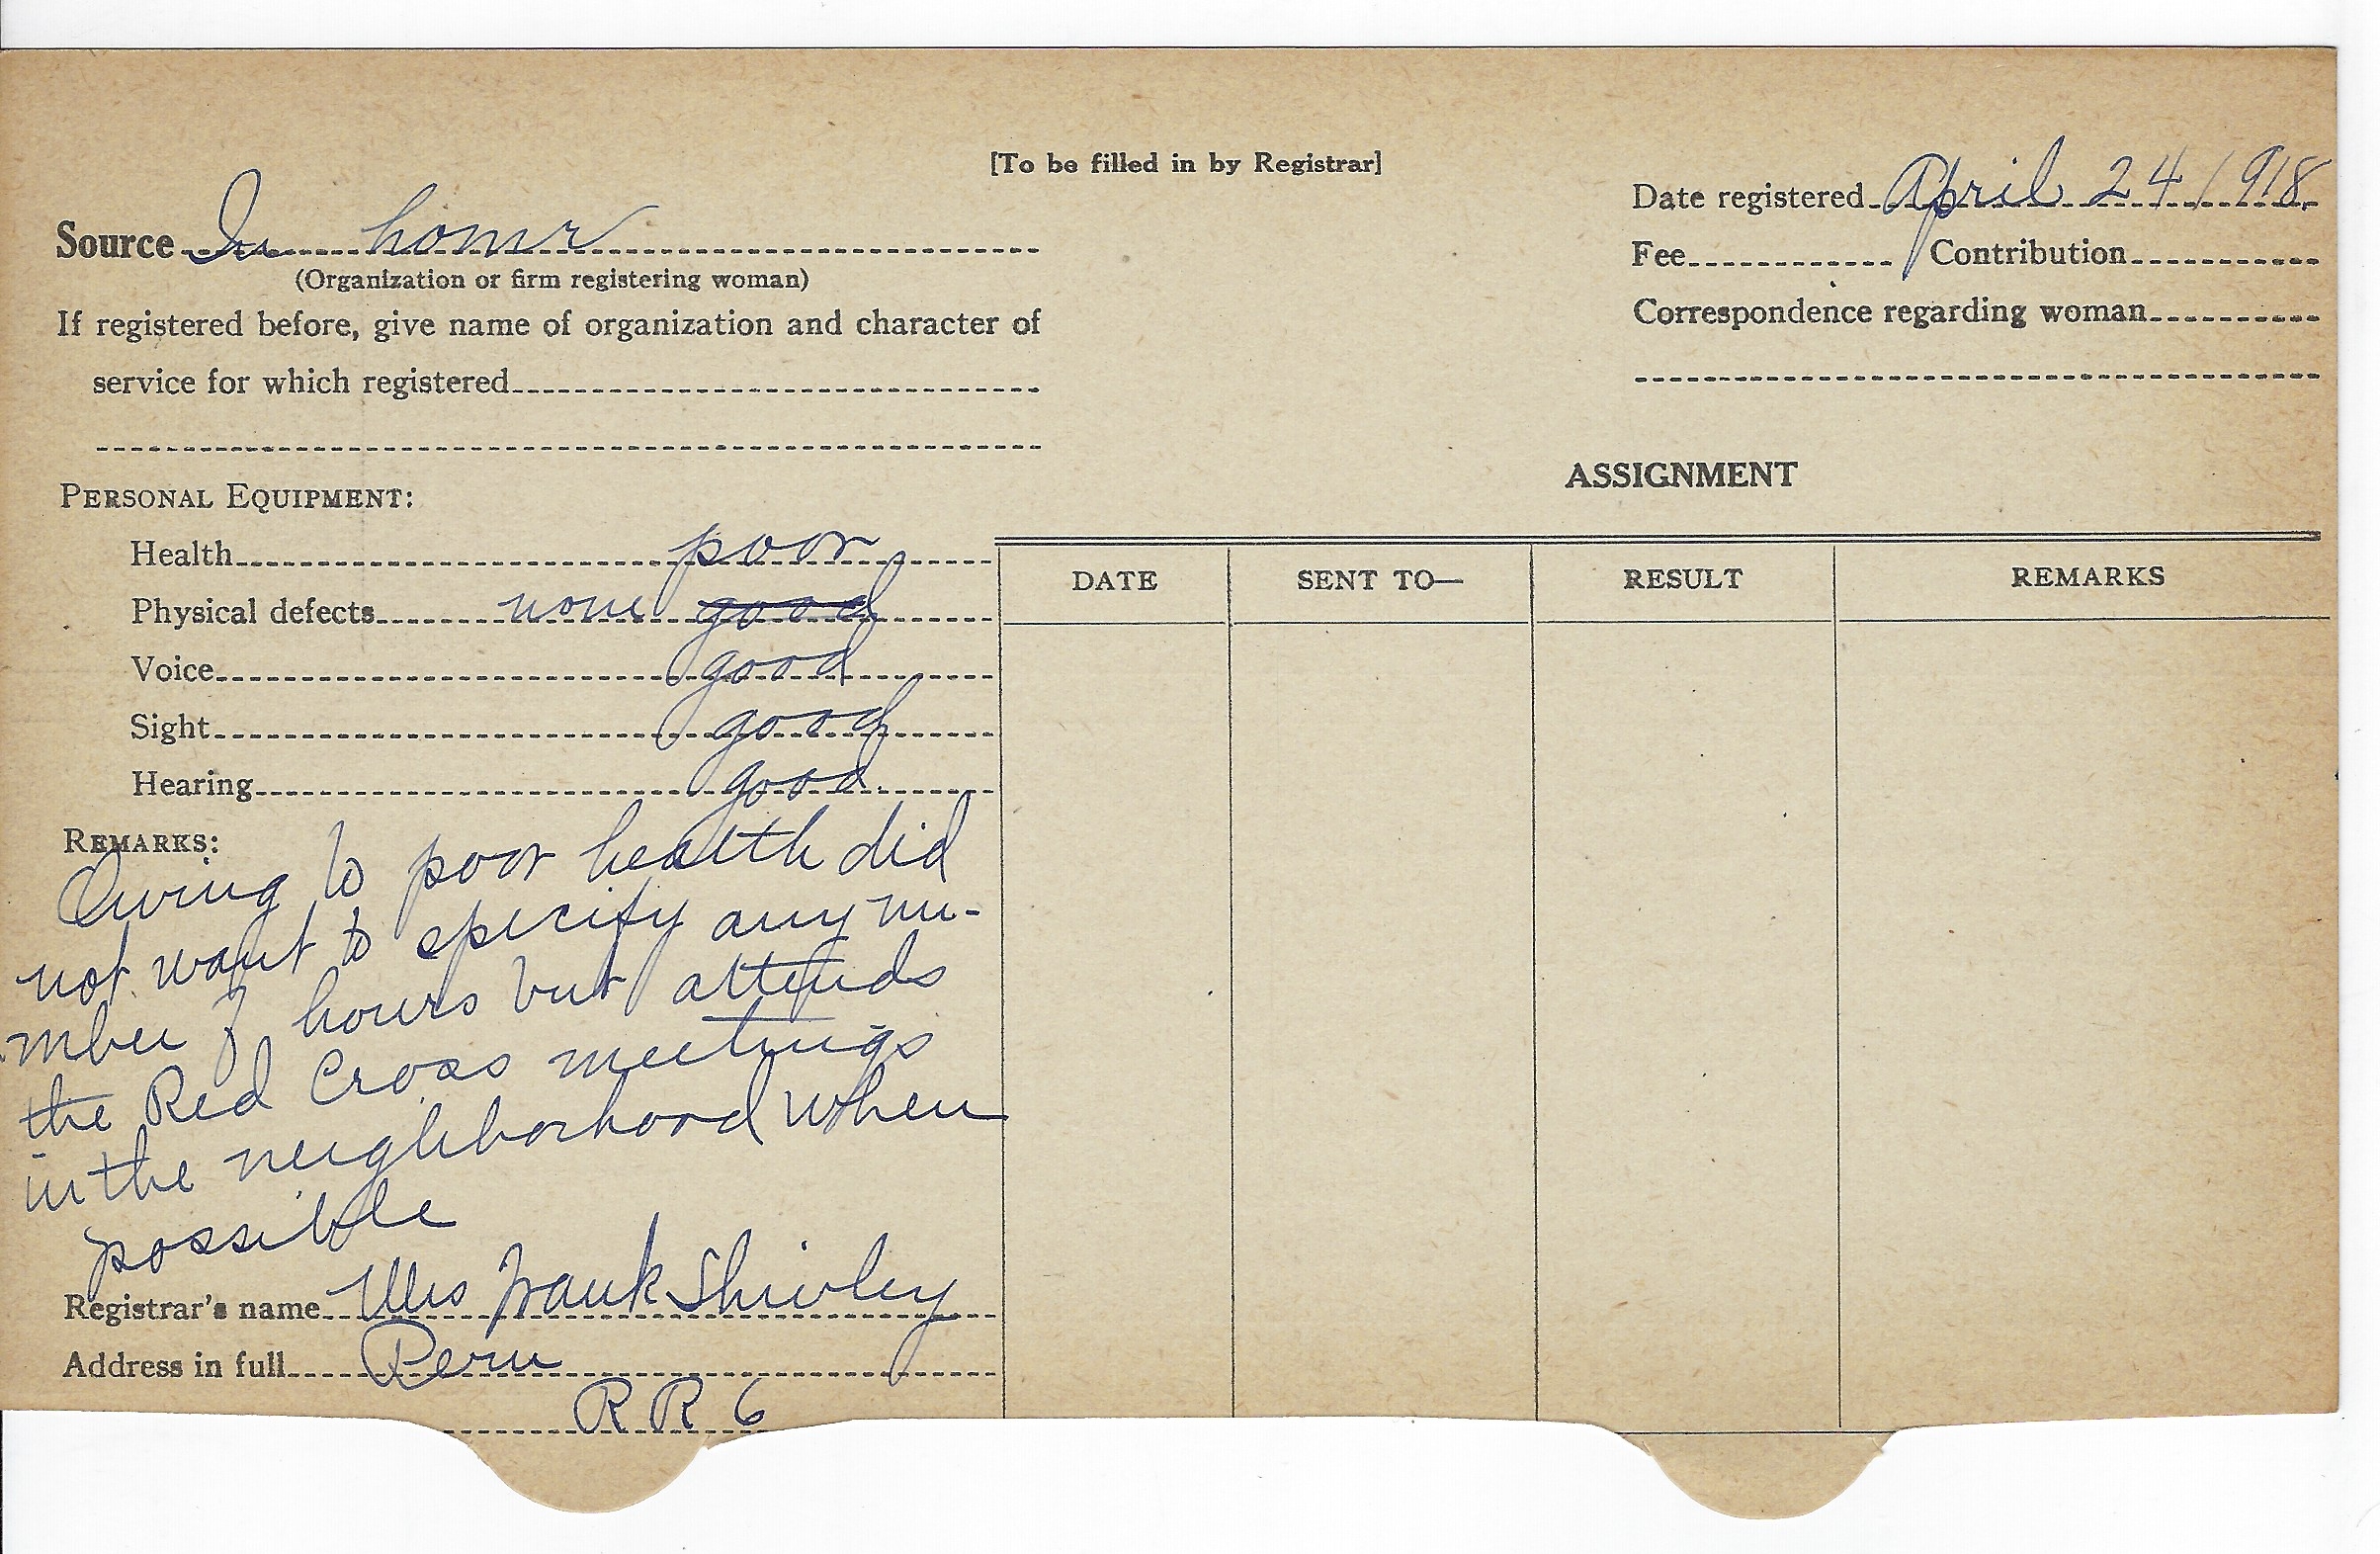 [To be filled in by Registrar]
Source In home
(Organization or firm registering woman)
If registered before, give name of organization and character of
service for which registered
Date registered April 24 1918
Fee Contribution
Correspondence regarding woman
PERSONAL EQUIPMENT:
Health poor
Physical defects none good
Voice good
Sight good
Hearing good
REMARKS:
Owing to poor health did
not want to specify any nu-
mber of hours but attends
the Red Cross meetings
in the neighborhood when
possible
Registrar's name Mrs Frank Shivley
Address in full Peru
R R 6
ASSIGNMENT
DATE SENT TO— RESULT REMARKS